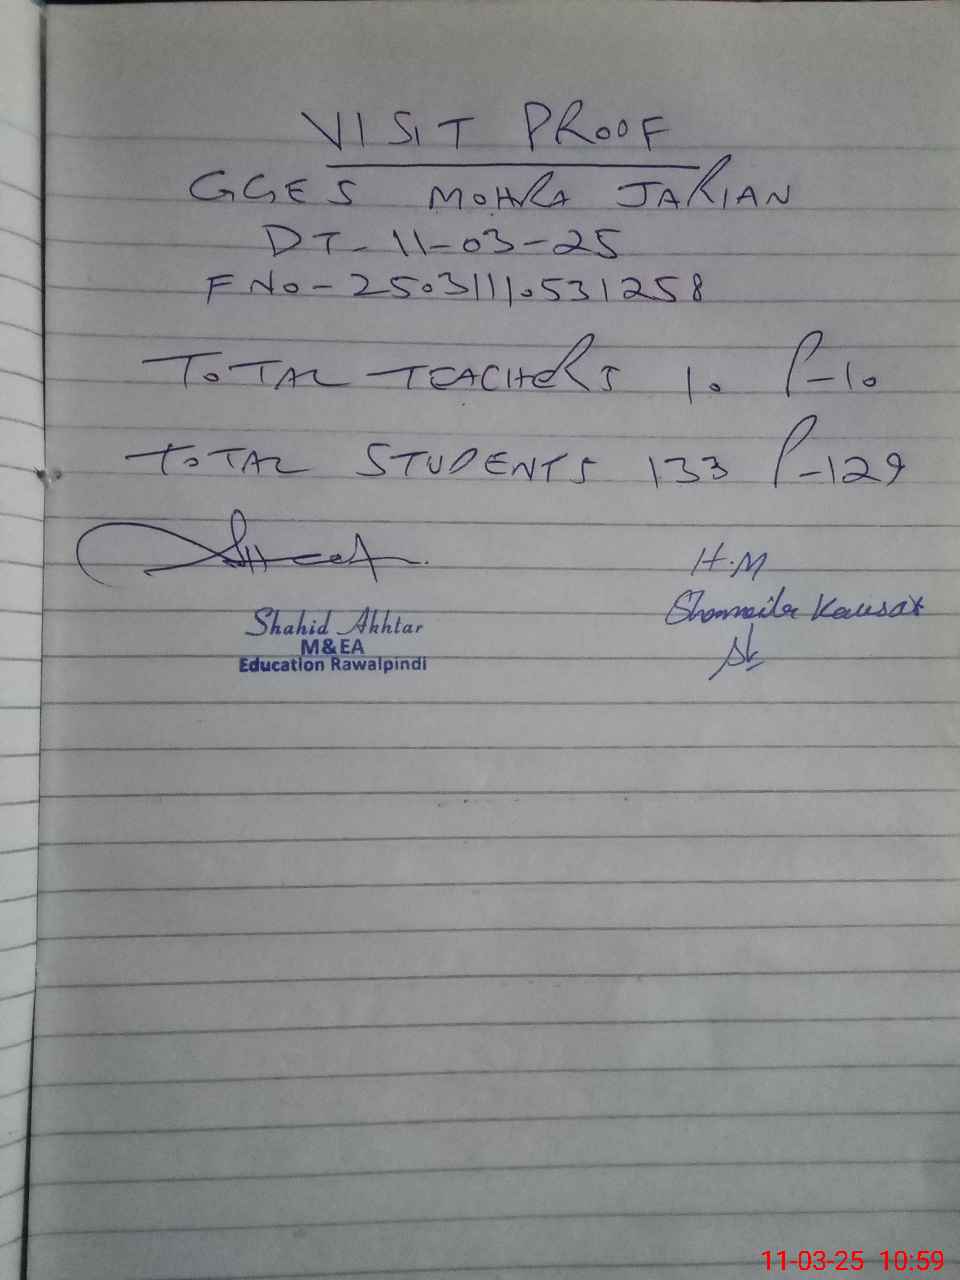 VISIT PROOF
GGES MOHRA JARIAN
DT- 11-03-25
F No- 25031110531258
TOTAL TEACHERS 10 P-10
TOTAL STUDENTS 133 P-129
Shahid Akhtar
M&EA
Education Rawalpindi
H.M
Shomaila Kausar
11-03-25 10:59